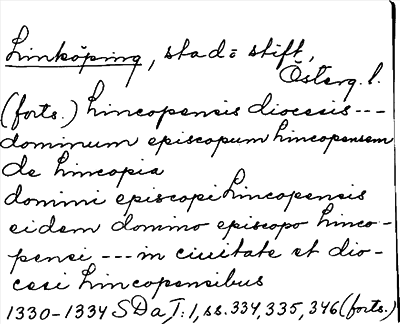 Linköping, stad = stift,
Österg. l.
(forts.) Lincopensis diocesis ---
dominum episcopum Lincopensem
de Lincopia
domini episcopi Lincopensis
eidem domino episcopo Linco-
pensi --- in ciuitate et dio-
cesi Lincopensibus
1330-1334 SDa I:1, ss. 334, 335, 346 (forts.)